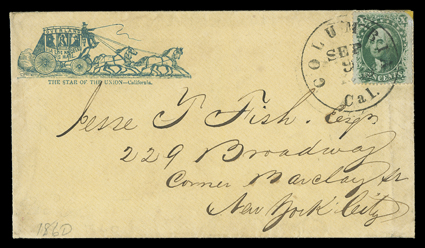 OVERLAND
THE STAR OF THE UNION—California.
COLUMBIA
SEP
9
Cal.
CENTS
Jesse T Fish. Esq.
229 Broadway
Corner Barclay St
New York City
1860